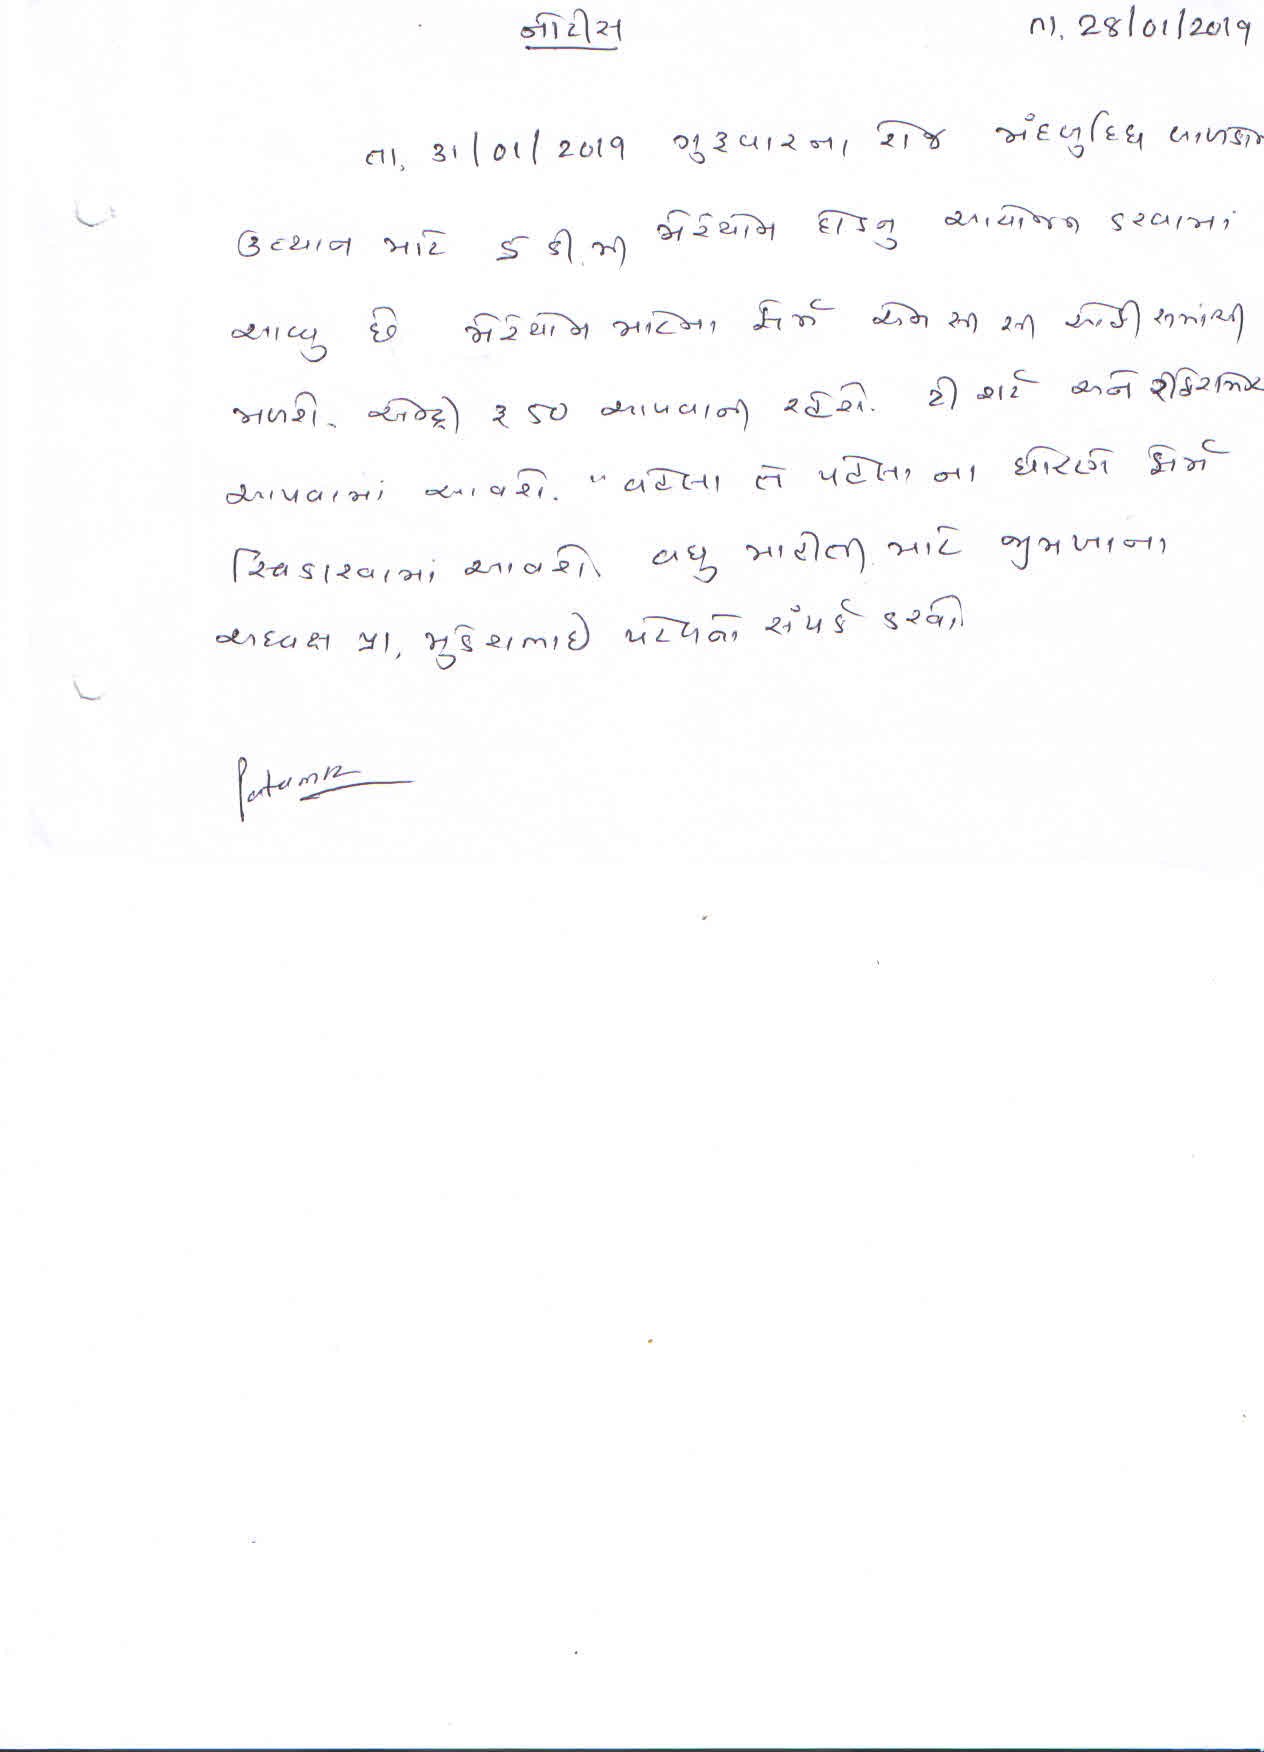 નોટીસ
તા. 28/01/2019
તા. 31/01/2019 ગુરૂવારના રોજ મંદબુદ્ધિ બાળકોના
ઉત્થાન માટે ૬ કી.મી મેરેથોન દોડનુ આયોજન કરવામાં
આવ્યુ છે મેરેથોન માટેના ફોર્મ એન સી સી ઓફીસમાંથી
મળશે. એન્ટ્રી રૂ ૬૦ આપવાની રહેશે. ટી શર્ટ અને
આપવામાં આવશે. "વહેલા તે પહેલા ના ધોરણે ફોર્મ
સ્વિકારવામાં આવશે. વધુ માહીતી માટે જીમખાના
અધ્યક્ષ પ્રા. મુકેશભાઈ પટેલનો સંપર્ક કરવો.